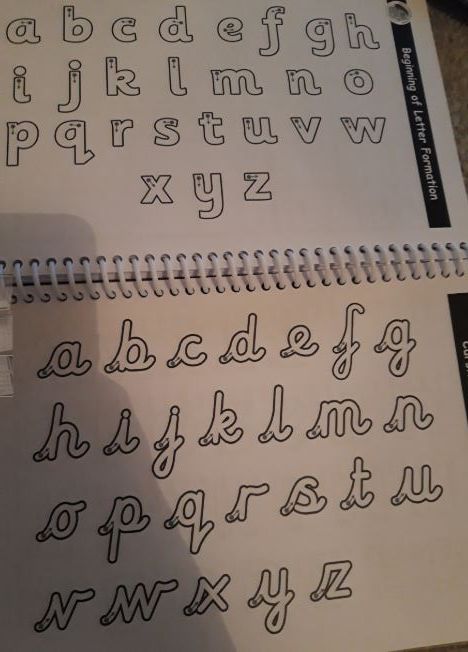 a b c d e f g h
i j k l m n o
p q r s t u v w
x y z
Beginning of Letter Formation
a b c d e f g
h i j k l m n
o p q r s t u
v w x y z